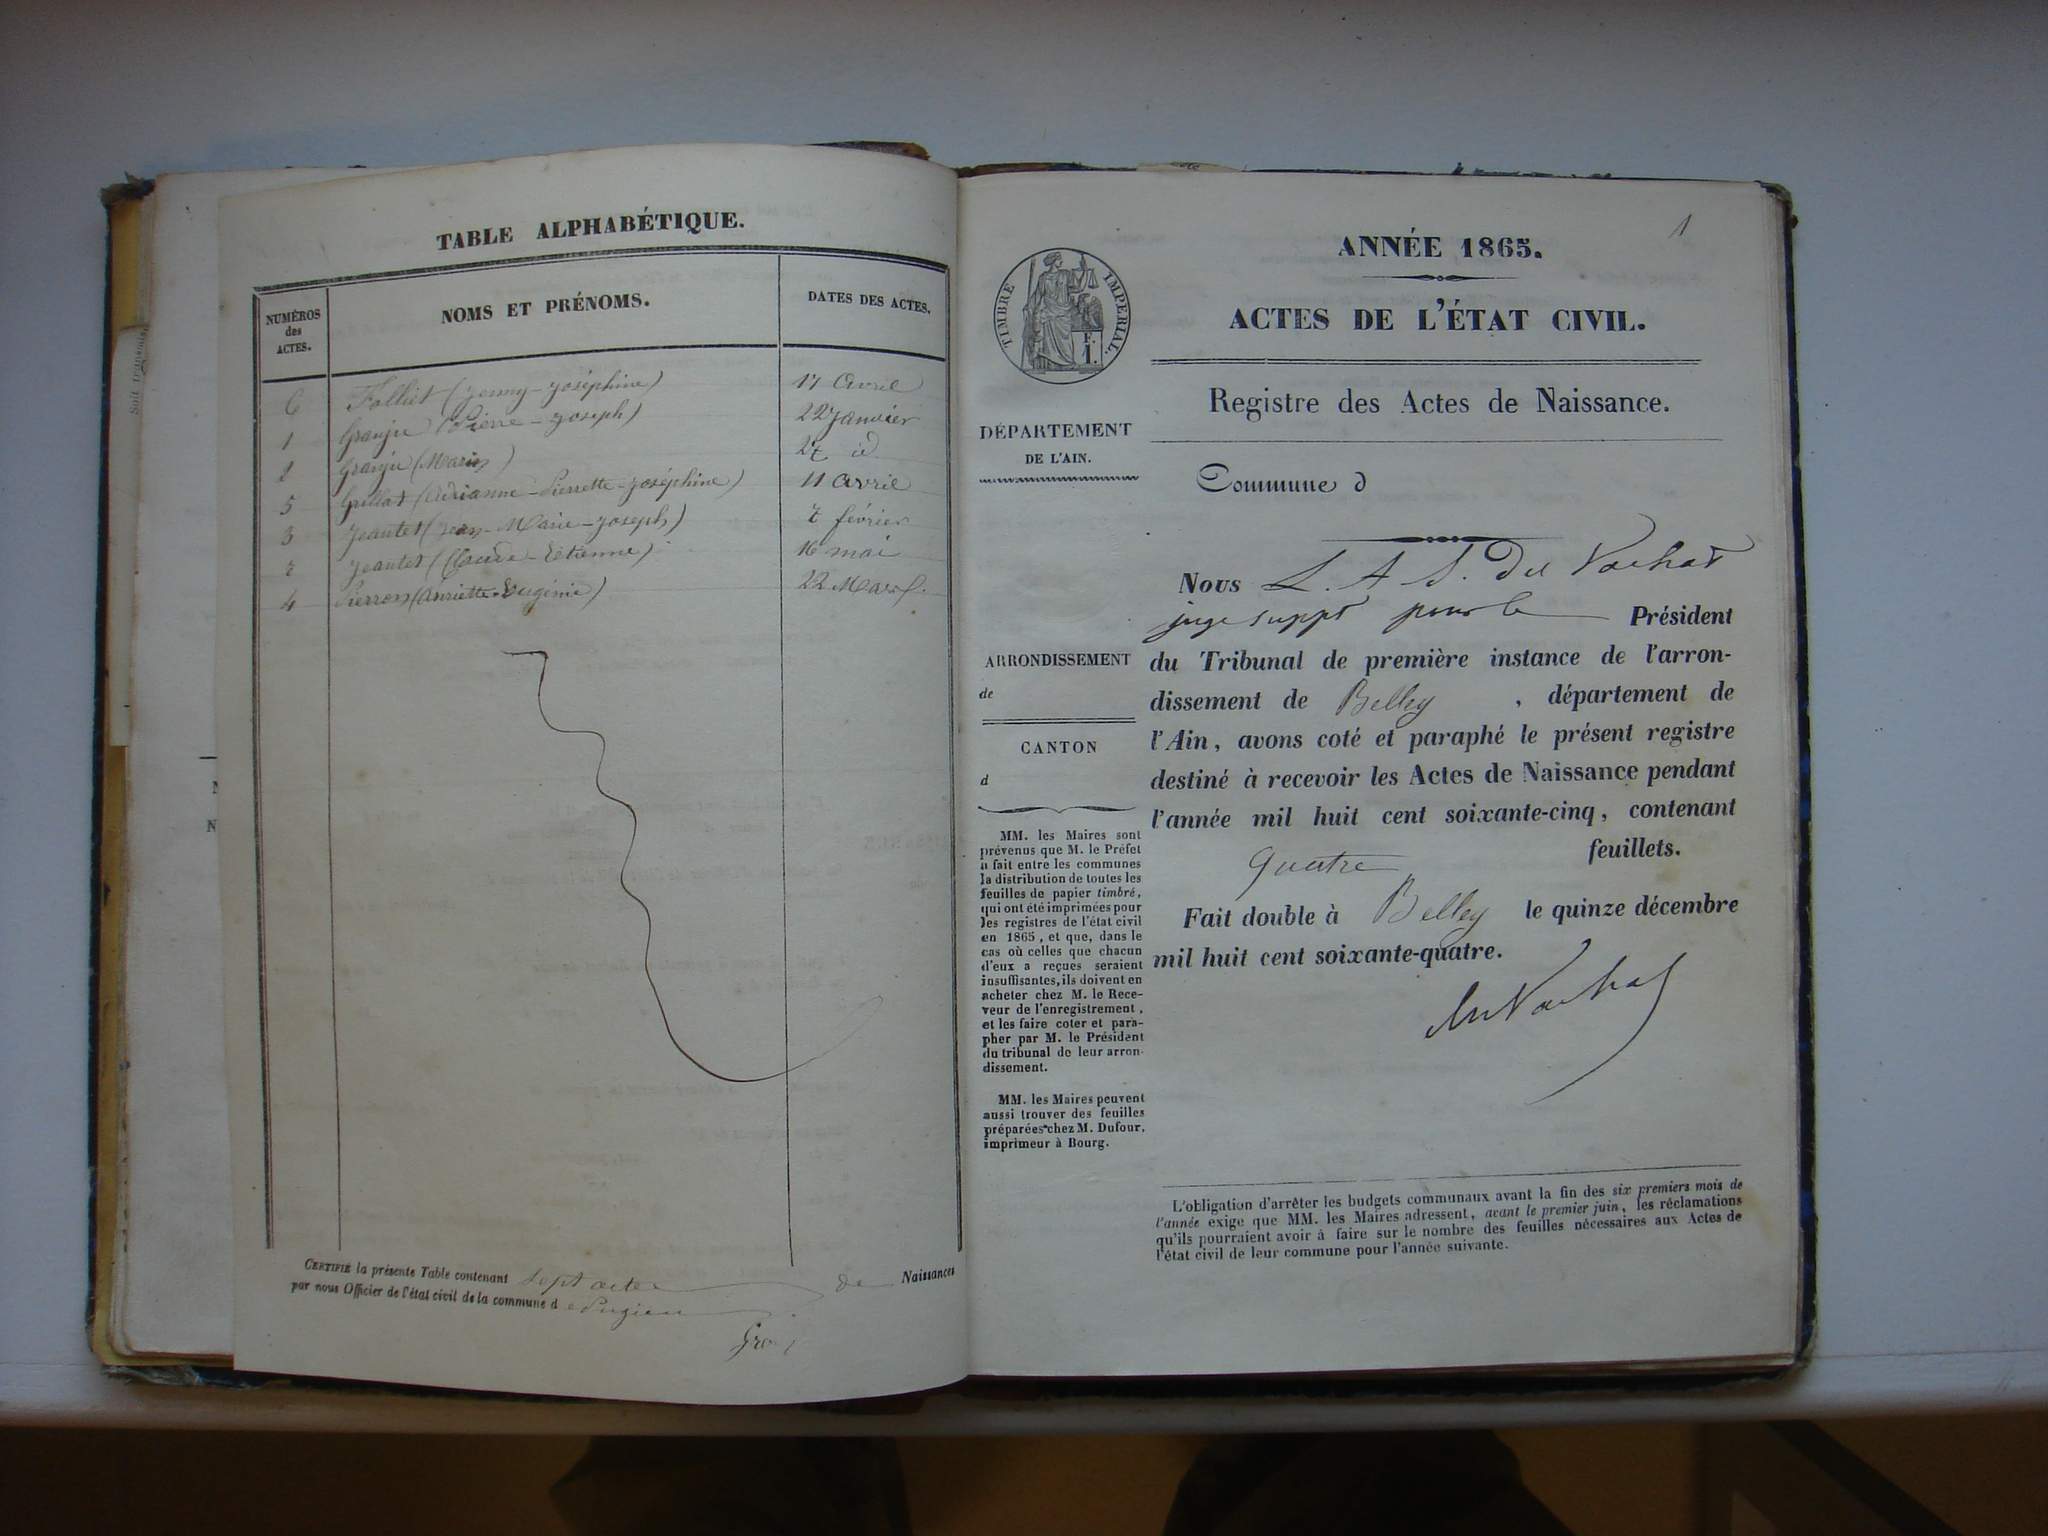 TABLE ALPHABÉTIQUE.
NUMÉROS
des
ACTES.
NOMS ET PRÉNOMS.
DATES DES ACTES.
6 Folliet (Jenny-Joséphine) 17 avril
1 Granju (Pierre-Joseph) 22 Janvier
2 Granju (Marie) 27 id
5 Grillat (Adrianne-Pierrette-Joséphine) 11 avril
3 Jeantet (Jean-Marie-Joseph) 7 février
7 Jeantet (Claude-Etienne) 16 mai
4 Pierron (Anriette-Eugénie) 22 Mars
CERTIFIÉ la présente Table contenant sept actes de Naissances
par nous Officier de l'état civil de la commune d e Pugieu
1
ANNÉE 1865.
TIMBRE IMPERIAL.
F.
1.
ACTES DE L'ÉTAT CIVIL.
Registre des Actes de Naissance.
DÉPARTEMENT
DE L'AIN.
Commune d
ARRONDISSEMENT
de
CANTON
d
MM. les Maires sont
prévenus que M. le Préfet
a fait entre les communes
la distribution de toutes les
feuilles de papier timbré,
qui ont été imprimées pour
les registres de l'état civil
en 1865, et que, dans le
cas où celles que chacun
d'eux a reçues seraient
insuffisantes, ils doivent en
acheter chez M. le Rece-
veur de l'enregistrement,
et les faire coter et para-
pher par M. le Président
du tribunal de leur arron-
dissement.
MM. les Maires peuvent
aussi trouver des feuilles
préparées chez M. Dufour,
imprimeur à Bourg.
Nous L. A. J. Du Vachat
juge suppt pour le Président
du Tribunal de première instance de l'arron-
dissement de Belley, département de
l'Ain, avons coté et paraphé le présent registre
destiné à recevoir les Actes de Naissance pendant
l'année mil huit cent soixante-cinq, contenant
quatre feuillets.
Fait double à Belley le quinze décembre
mil huit cent soixante-quatre.
du Vachat
L'obligation d'arrêter les budgets communaux avant la fin des six premiers mois de
l'année exige que MM. les Maires adressent, avant le premier juin, les réclamations
qu'ils pourraient avoir à faire sur le nombre des feuilles nécessaires aux Actes de
l'état civil de leur commune pour l'année suivante.